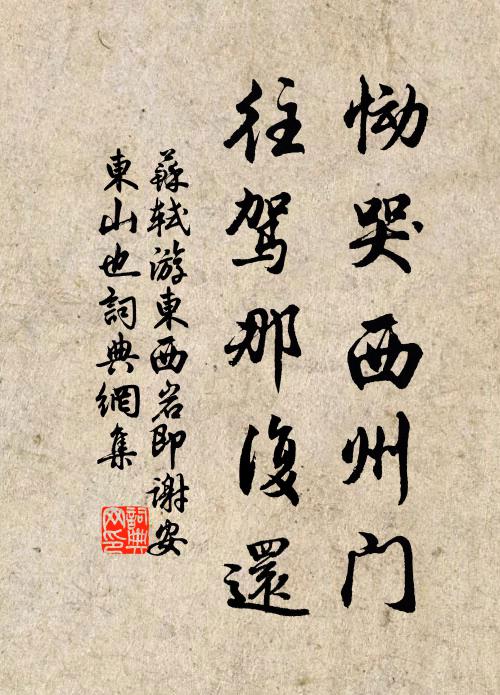 恸哭西州门
往驾那復還
蘇軾游東西岩即謝安
東山也詞典網集
詞典网印